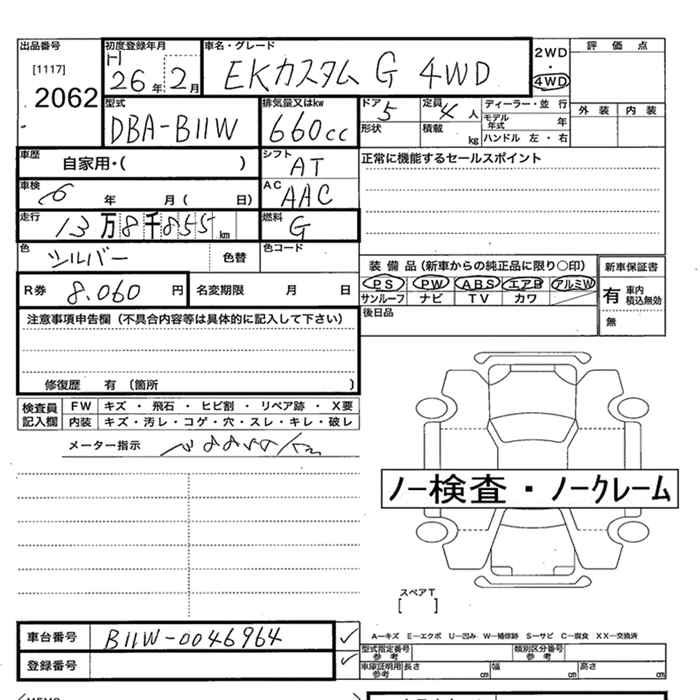 出品番号 初度登録年月 車名・グレード 2WD 評価点
[1117] H ・
2062 26年 2月 EKカスタム G 4WD 4WD
型式 排気量又はkw ドア 5 定員 4人 ディーラー・並 行 外装 内装
DBA-B11W 660cc 形状 積載 kg モデル年式 年
ハンドル 左・右
車歴 自家用・( ) シフト AT 正常に機能するセールスポイント
車検 6 年 月( 日) AC AAC
走行 13万8千855km 燃料 G
色 シルバー 色替 色コード
装備品(新車からの純正品に限り○印) 新車保証書
R券 8.060円 名変期限 月 日 PS PW ABS エアB アルミW 有 車内積込無効
サンルーフ ナビ TV カワ
注意事項申告欄(不具合内容等は具体的に記入して下さい) 後日品 無
修復歴 有 (箇所 )
検査員 FW キズ・飛石・ヒビ割・リペア跡・X要
記入欄 内装 キズ・汚レ・コゲ・穴・スレ・キレ・破レ
メーター指示
ノー検査・ノークレーム
スペアT
[ ]
車台番号 B11W-0046964 A―キズ E―エクボ U―凹み W―補修跡 S―サビ C―腐食 XX―交換済
型式指定番号 参考 類別区分番号 参考
登録番号 車庫証明用 参考 長さ cm 幅 cm 高さ cm